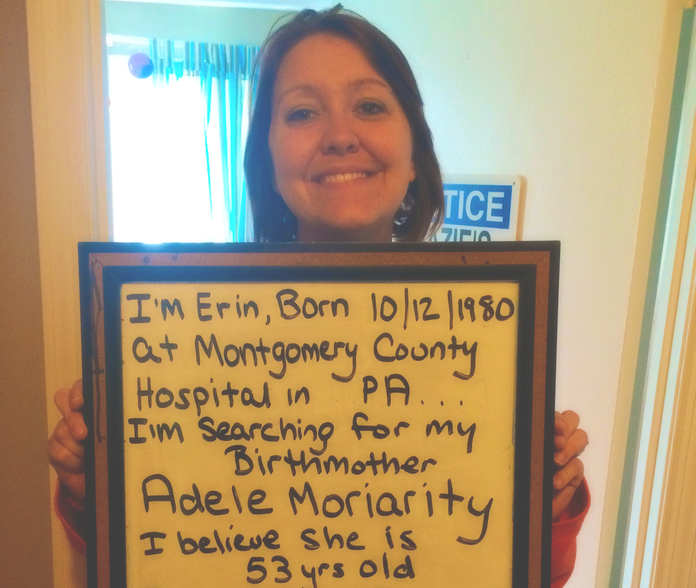 TICE
I'm Erin, Born 10/12/1980
at Montgomery County
Hospital in PA...
I'm Searching for my
Birthmother
Adele Moriarity
I believe she is
53 yrs old